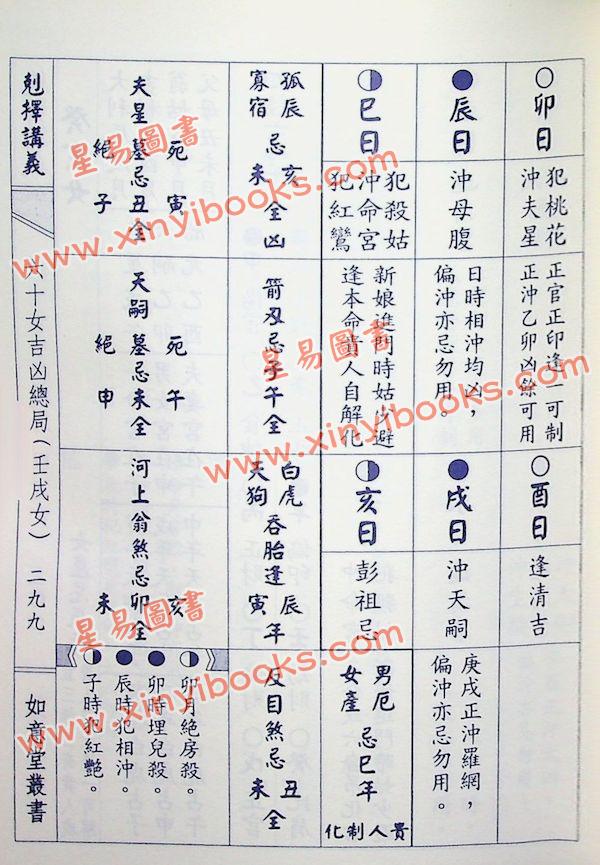 ○卯日
犯桃花
沖夫星
正官正印逢一可制
正沖乙卯凶餘可用
○酉日
逢清吉
●辰日
沖母腹
日時相沖均凶，
偏沖亦忌勿用。
●戌日
沖天嗣
庚戌正沖羅網，
偏沖亦忌勿用。
◑巳日
犯殺姑
沖命宮
犯紅鸞
新娘進門時姑少避
逢本命貴人自解化
◑亥日
彭祖忌
男厄
女產
忌巳年
貴人制化
孤辰
寡宿
忌亥未全凶
箭刃忌子午全
白虎
天狗
吞胎逢辰寅年
反目煞忌丑未全
死寅
夫星墓忌丑全
絕子
死午
天嗣墓忌未全
絕申
河上翁煞忌卯全
亥
未
◑卯月絕房殺。
●卯時埋兒殺。
●辰時犯相沖。
◑子時犯紅艷。
剋擇講義
六十女吉凶總局(壬戌女)
二九九
如意堂叢書
星易圖書
www.xinyibooks.com
星易圖書
www.xinyibooks.com
星易圖書
www.xinyibooks.com